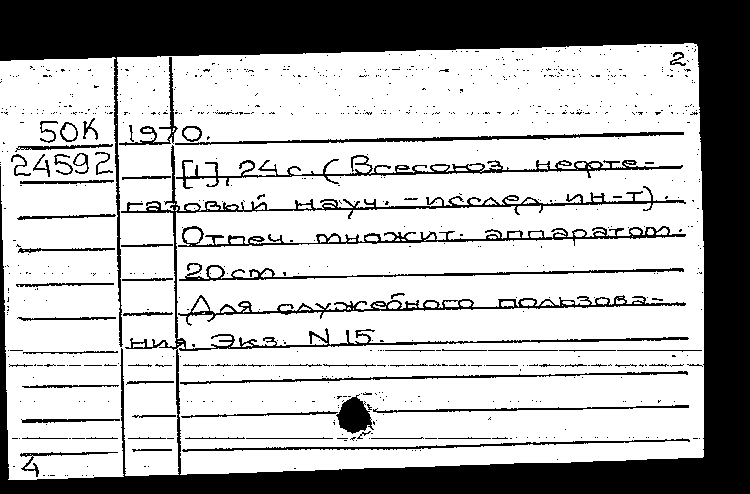 2
50К 1970.
24592 [1], 24 с. (Всесоюз. нефте-
газовый науч.-исслед. ин-т).
Отпеч. множит. аппаратом.
20 cm.
Для служебного пользова-
ния. Экз. N 15.
4